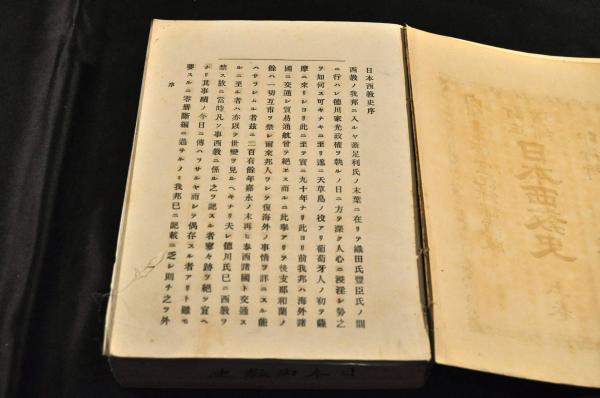 日本西教史序
西教ノ我邦ニ入ルヤ蓋足利氏ノ末葉ニ在リテ織田氏豐臣氏ノ間
ニ行ハレ德川家光政權ヲ執ルノ日ニ方テ深ク人心ニ浸淫シ勢之
ヲ如何ス可キナキニ至リ遂ニ天草島ノ役アリ葡萄牙人ノ初テ薩
摩ニ來リショリ此ニ至テ實ニ九十年ナリ此ヨリ前我邦ハ海外諸
國ニ交通シ貿易通航曾テ絶エス而ルニ此擧アリテ後支那和蘭ノ
餘ハ一切互市ヲ禁シ爾來邦人ヲシテ復海外ノ事情ヲ詳ニスル能
ハサラシムル者玆ニ二百有餘年嘉永ノ末再ヒ泰西諸國ト交通ス
ルニ至ル者ハ亦以テ世變ヲ見ルヘキナリ夫レ德川氏已ニ西教ヲ
禁ス故ニ當時凡ソ事西教ニ係ル之ヲ記スル者寥々跡ヲ絶ツ宜ヘ
ナリ其事蹟ノ今日ニ傳ハラサルヤ而シテ偶存スル者アリト雖モ
要スルニ零册斷編ニ過サルノミ我邦已ニ記載ニ乏シ則チ之ヲ外
序
日本西教史
日本西教史